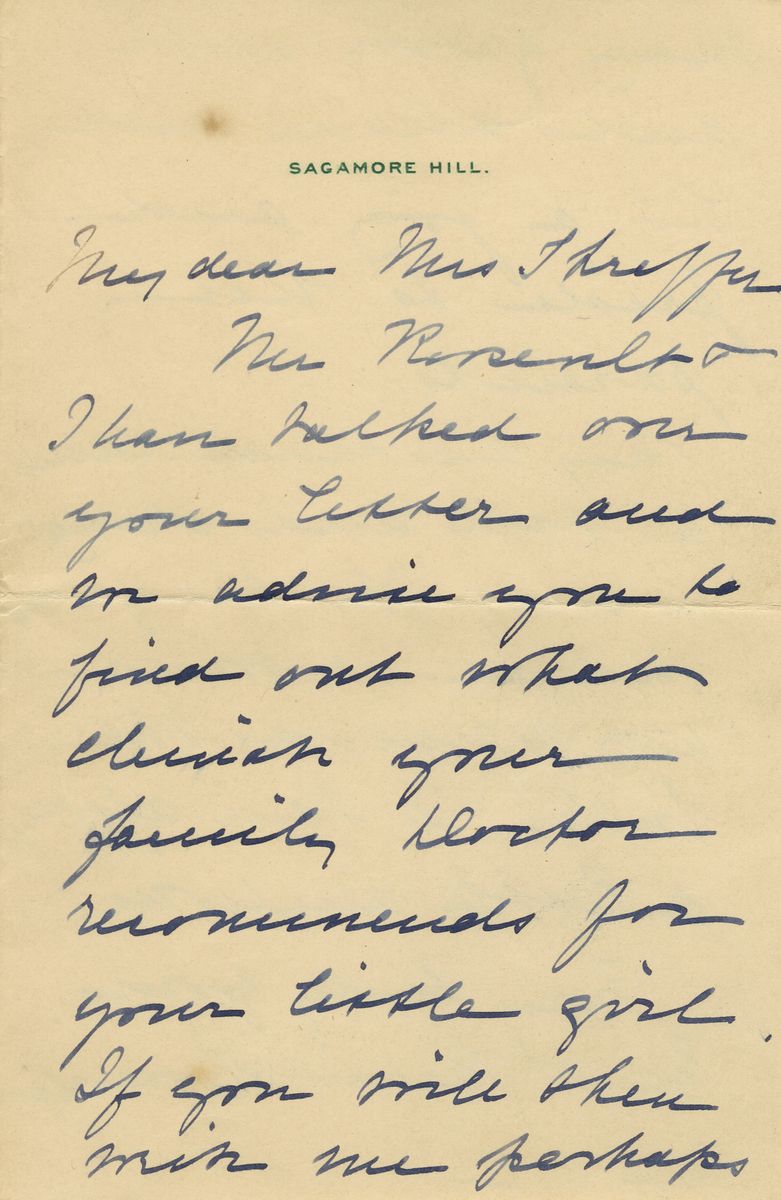 SAGAMORE HILL.
My dear Mrs
Mr Roosevelt &
I have talked over
your letter and
we advise you to
find out what
your
family Doctor
recommends for
your little girl.
If you will then
write me perhaps